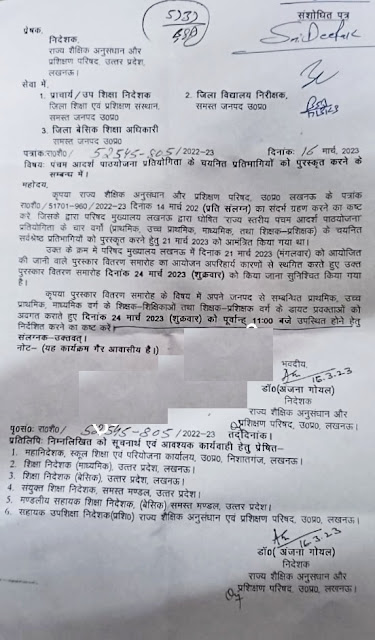 5931
संशोधित पत्र
प्रेषक,
निदेशक,
राज्य शैक्षिक अनुसंधान और
प्रशिक्षण परिषद, उत्तर प्रदेश,
लखनऊ।
सेवा में,
1. प्राचार्य/उप शिक्षा निदेशक
जिला शिक्षा एवं प्रशिक्षण संस्थान,
समस्त जनपद उ0प्र0
2. जिला विद्यालय निरीक्षक,
समस्त जनपद उ0प्र0
3. जिला बेसिक शिक्षा अधिकारी
समस्त जनपद उ0प्र0
पत्रांक: रा0शै0/ 52545-805/2022-23 दिनांक: 16 मार्च, 2023
विषयः पंचम आदर्श पाठयोजना प्रतियोगिता के चयनित प्रतिभागियों को पुरस्कृत करने के
सम्बन्ध में।
महोदय,
कृपया राज्य शैक्षिक अनुसंधान और प्रशिक्षण परिषद, उ0प्र0 लखनऊ के पत्रांक
रा0शै0/51701-960/2022-23 दिनांक 14 मार्च 202 (प्रति संलग्न) का संदर्भ ग्रहण करने का कष्ट
करें जिसके द्वारा परिषद मुख्यालय लखनऊ द्वारा घोषित राज्य स्तरीय पंचम आदर्श पाठयोजना
प्रतियोगिता के चार वर्गों (प्राथमिक, उच्च प्राथमिक, माध्यमिक, तथा शिक्षक-प्रशिक्षक) के चयनित
सर्वश्रेष्ठ प्रतिभागियों को पुरस्कृत करने हेतु 21 मार्च 2023 को आमंत्रित किया गया था।
उक्त के क्रम में परिषद मुख्यालय लखनऊ में दिनांक 21 मार्च 2023 (मंगलवार) को आयोजित
की जानी वाले पुरस्कार वितरण समारोह का आयोजन अपरिहार्य कारणो से स्थगित करते हुए उक्त
पुरस्कार वितरण समारोह दिनांक 24 मार्च 2023 (शुक्रवार) को किया जाना सुनिश्चित किया गया
है।
कृपया पुरस्कार वितरण समारोह के विषय में अपने जनपद से सम्बन्धित प्राथमिक, उच्च
प्राथमिक, माध्यमिक वर्ग के शिक्षक-शिक्षिकाओं तथा शिक्षक-प्रशिक्षक वर्ग के डायट प्रवक्ताओं को
अवगत कराते हुए दिनांक 24 मार्च 2023 (शुक्रवार) को पूर्वान्ह 11:00 बजे उपस्थित होने हेतु
निर्देशित करने का कष्ट करें।
संलग्नक-उक्तवत्।
नोट- (यह कार्यक्रम गैर आवासीय है।)
भवदीय,
16.3.23
डॉ0(अंजना गोयल)
निदेशक
राज्य शैक्षिक अनुसंधान और
प्रशिक्षण परिषद, उ0प्र0, लखनऊ।
पृ0सं0: रा0शै0/ 52545-805/2022-23 तद्दिनांक।
प्रतिलिपिः निम्नलिखित को सूचनार्थ एवं आवश्यक कार्यवाही हेतु प्रेषित-
1. महानिदेशक, स्कूल शिक्षा एवं परियोजना कार्यालय, उ0प्र0, निशातगंज, लखनऊ।
2. शिक्षा निदेशक (माध्यमिक), उत्तर प्रदेश, लखनऊ।
3. शिक्षा निदेशक (बेसिक), उत्तर प्रदेश, लखनऊ।
4. संयुक्त शिक्षा निदेशक, समस्त मण्डल, उत्तर प्रदेश।
5. मण्डलीय सहायक शिक्षा निदेशक, (बेसिक) समस्त मण्डल, उत्तर प्रदेश।
6. सहायक उपशिक्षा निदेशक(प्रशि0) राज्य शैक्षिक अनुसंधान एवं प्रशिक्षण परिषद, उ0प्र0, लखनऊ।
16.3.23
डॉ0( अंजना गोयल)
निदेशक
राज्य शैक्षिक अनुसंधान और
प्रशिक्षण परिषद, उ0प्र0, लखनऊ।